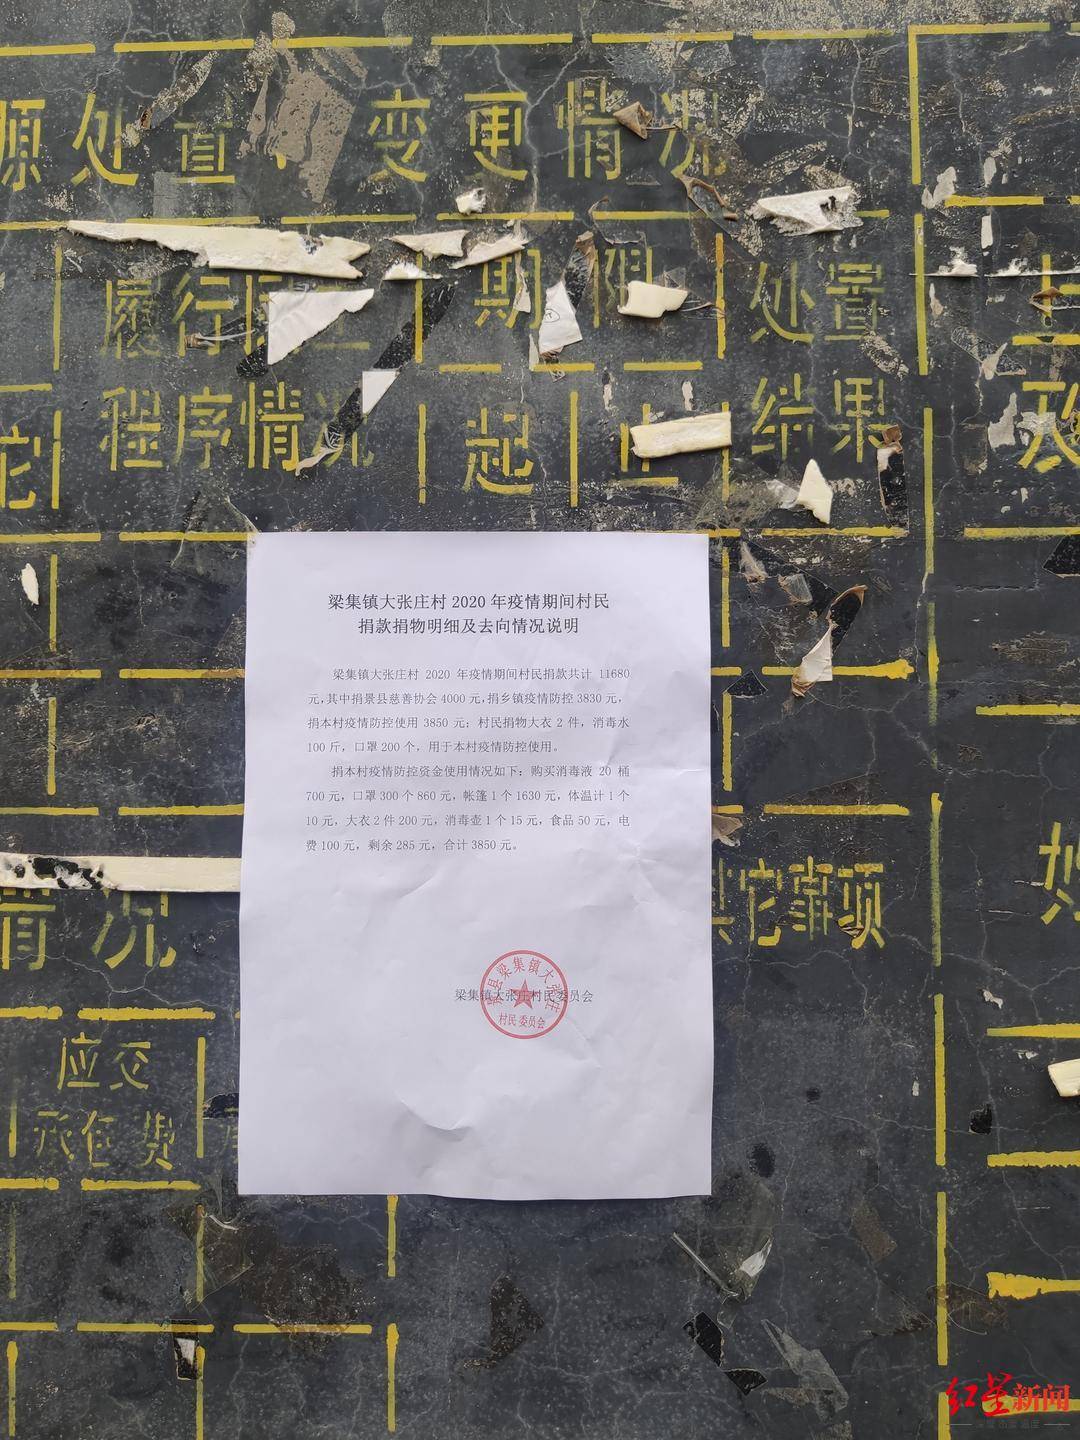 源处置、变更情况
履行
期限
处置
程序情况
起止
结果
梁集镇大张庄村 2020 年疫情期间村民
捐款捐物明细及去向情况说明
梁集镇大张庄村 2020 年疫情期间村民捐款共计 11680
元，其中捐景县慈善协会 4000 元，捐乡镇疫情防控 3830 元，
捐本村疫情防控使用 3850 元；村民捐物大衣 2 件，消毒水
100 斤，口罩 200 个，用于本村疫情防控使用。
捐本村疫情防控资金使用情况如下：购买消毒液 20 桶
700 元，口罩 300 个 860 元，帐篷 1 个 1630 元，体温计 1 个
10 元，大衣 2 件 200 元，消毒壶 1 个 15 元，食品 50 元，电
费 100 元，剩余 285 元，合计 3850 元。
其它事项
情况
梁集镇大张庄村民委员会
景县梁集镇大张庄
村民委员会
应交
承包费
红星新闻